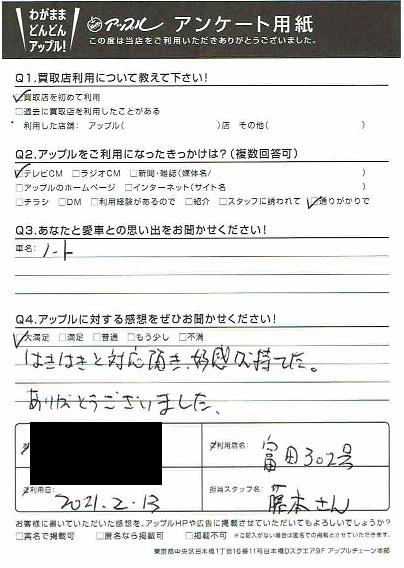 わがまま
どんどん
アップル!
アップル アンケート用紙
この度は当店をご利用いただきありがとうございました。
Q1.買取店利用について教えて下さい!
☑買取店を初めて利用
□過去に買取店を利用したことがある
利用した店舗: アップル( )店 その他( )
Q2.アップルをご利用になったきっかけは?(複数回答可)
☑テレビCM □ラジオCM □新聞・雑誌(媒体名/ )
□アップルのホームページ □インターネット(サイト名 )
□チラシ □DM □利用経験があるので □紹介 □スタッフに誘われて ☑通りがかりで
Q3.あなたと愛車との思い出をお聞かせください!
車名: ノート
Q4.アップルに対する感想をぜひお聞かせください!
☑大満足 □満足 □普通 □もう少し □不満
はきはきと対応頂き、好感が持てた。
ありがとうございました。
ご利用店名: 富田302号
ご利用日: 2021.2.13
担当スタッフ名: 藤本さん
お客様に書いていただいた感想を、アップルHPや広告に掲載させていただいてもよろしいでしょうか?
□実名で掲載可 □匿名なら掲載可 □掲載不可 ※ご記入がない場合は匿名での掲載とさせていただきます。
東京都中央区日本橋1丁目16番11号日本橋Dスクエア9F アップルチェーン本部